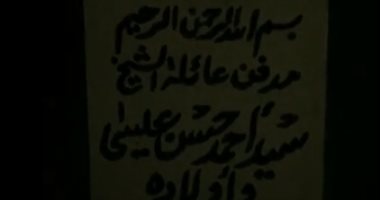 بسم الله الرحمن الرحيم
مدفن عائلة الشيخ
سيد أحمد حسن عليش
وأولاده